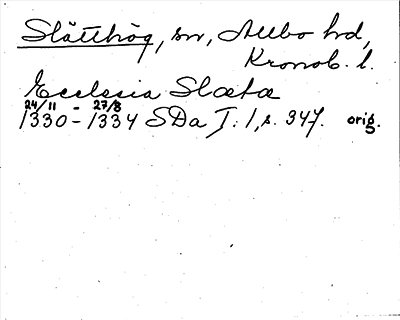 Slätthög, sn, Allbo hd,
Kronob. l.
Ecclesia Slæta
24/11 - 27/8
1330-1334 SDa I: 1, s. 347. orig.